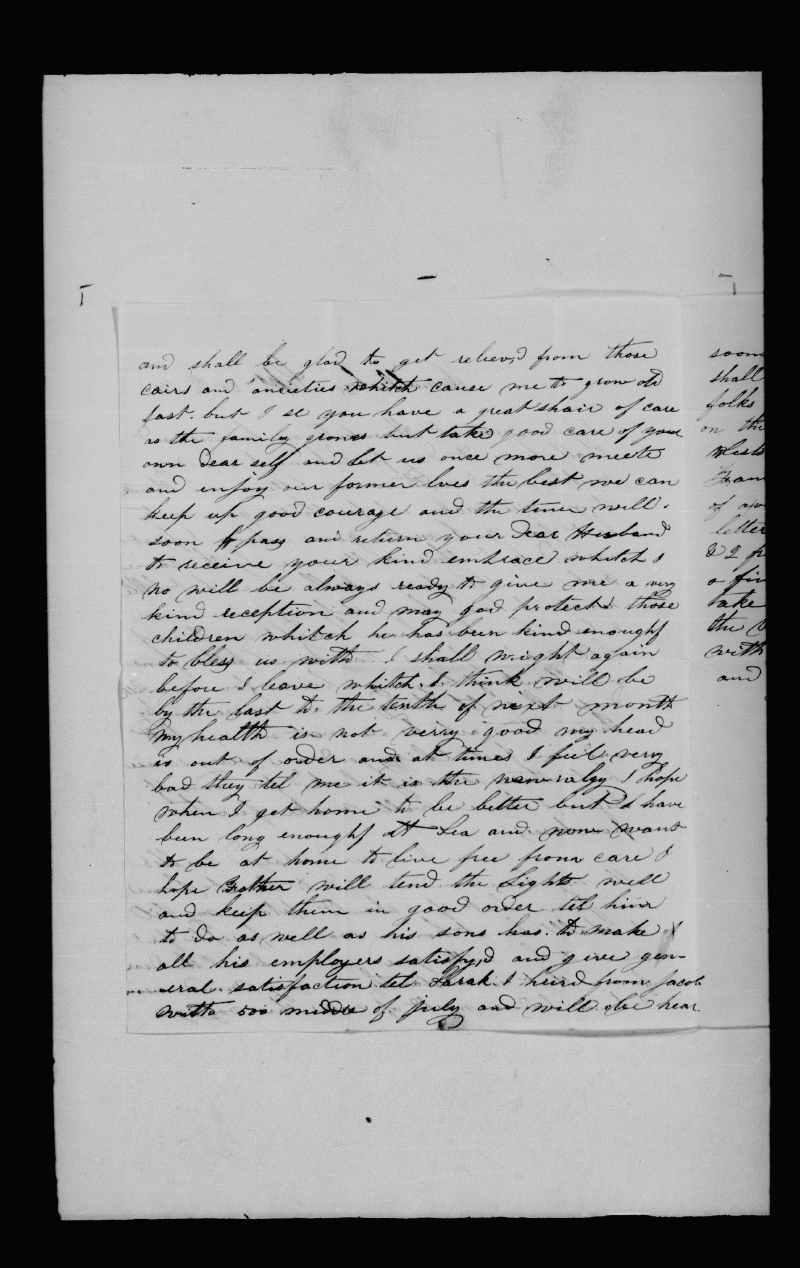 and shall be glad to get relieved from those
cairs and anxieties whitch cause me to grow old
fast. but I se you have a great shair of care
as the family grows but take good care of your
own dear self and let us once more meete
and enjoy our former lives the best we can
keep up good courage and the time will
soon pass and return your dear Husband
to receive your kind embrace whitch I
no will be always ready to give me a very
kind reception and may god protect those
children whitch he has been kind enoughf
to bless us with I shall wright again
before I leave whitch I think will be
by the last to the tenth of next month
my health is not verry good my head
is out of order and at times I feel very
bad they tel me it is the newralgy I hope
when I get home to be better but I have
been long enoughf at Sea and now want
to be at home to live free from care I
hope will tend the Lights well
and keep them in good order tel him
to do as well as his sons has to make
all his employers satisfyd and give gen-
eral satisfaction tel Sarah I heird from Jacob
with 500 middle of July and will be hear
soon
shall
folks
on the
of
letter
& 2
a
take
the
with
and